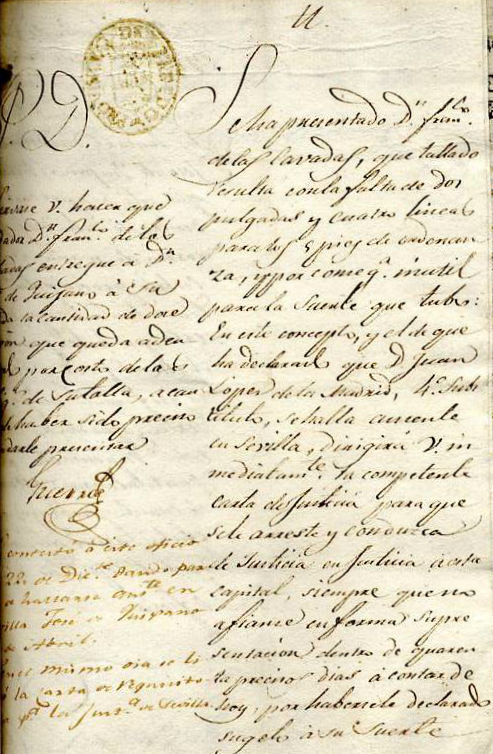 Se ha presentado Dn. Franco.
de las Cavadas, que tallado
resulta con la falta de dos
pulgadas y cuatro lineas
para los 5 pies de ordenan
za, y por conseqa. inutil
para la Suerte que tubo:
En este concepto, y el de que
ha declarado que D. Juan
Lopez de la Madrid, 4º. Subs
tituto, se halla ausente
en Sevilla, dirigirá V. in
mediatamte. la competente
carta de Justicia para que
se le arreste y conduzca
de Justicia en Justicia á esta
capital, siempre que no
afiance en forma su pre
sentacion dentro de quaren
ta precisos dias á contar de
hoy, por habersele declarado
sugeto à su Suerte
P. D.
V. hacer que
Dn. Franco. de las
entregue á Dn.
de Quijano á su
la cantidad de doce
que queda adeu
por costo de la
de su talla, a cau
haber sido preciso
presentar
Guerra
contestó á este oficio
22 de Dice. dando par
hallarse ausente en
villa José de Quijano
de Abril.
mismo dia se li
la carta de requisito
pa. las Justas. de Sevilla